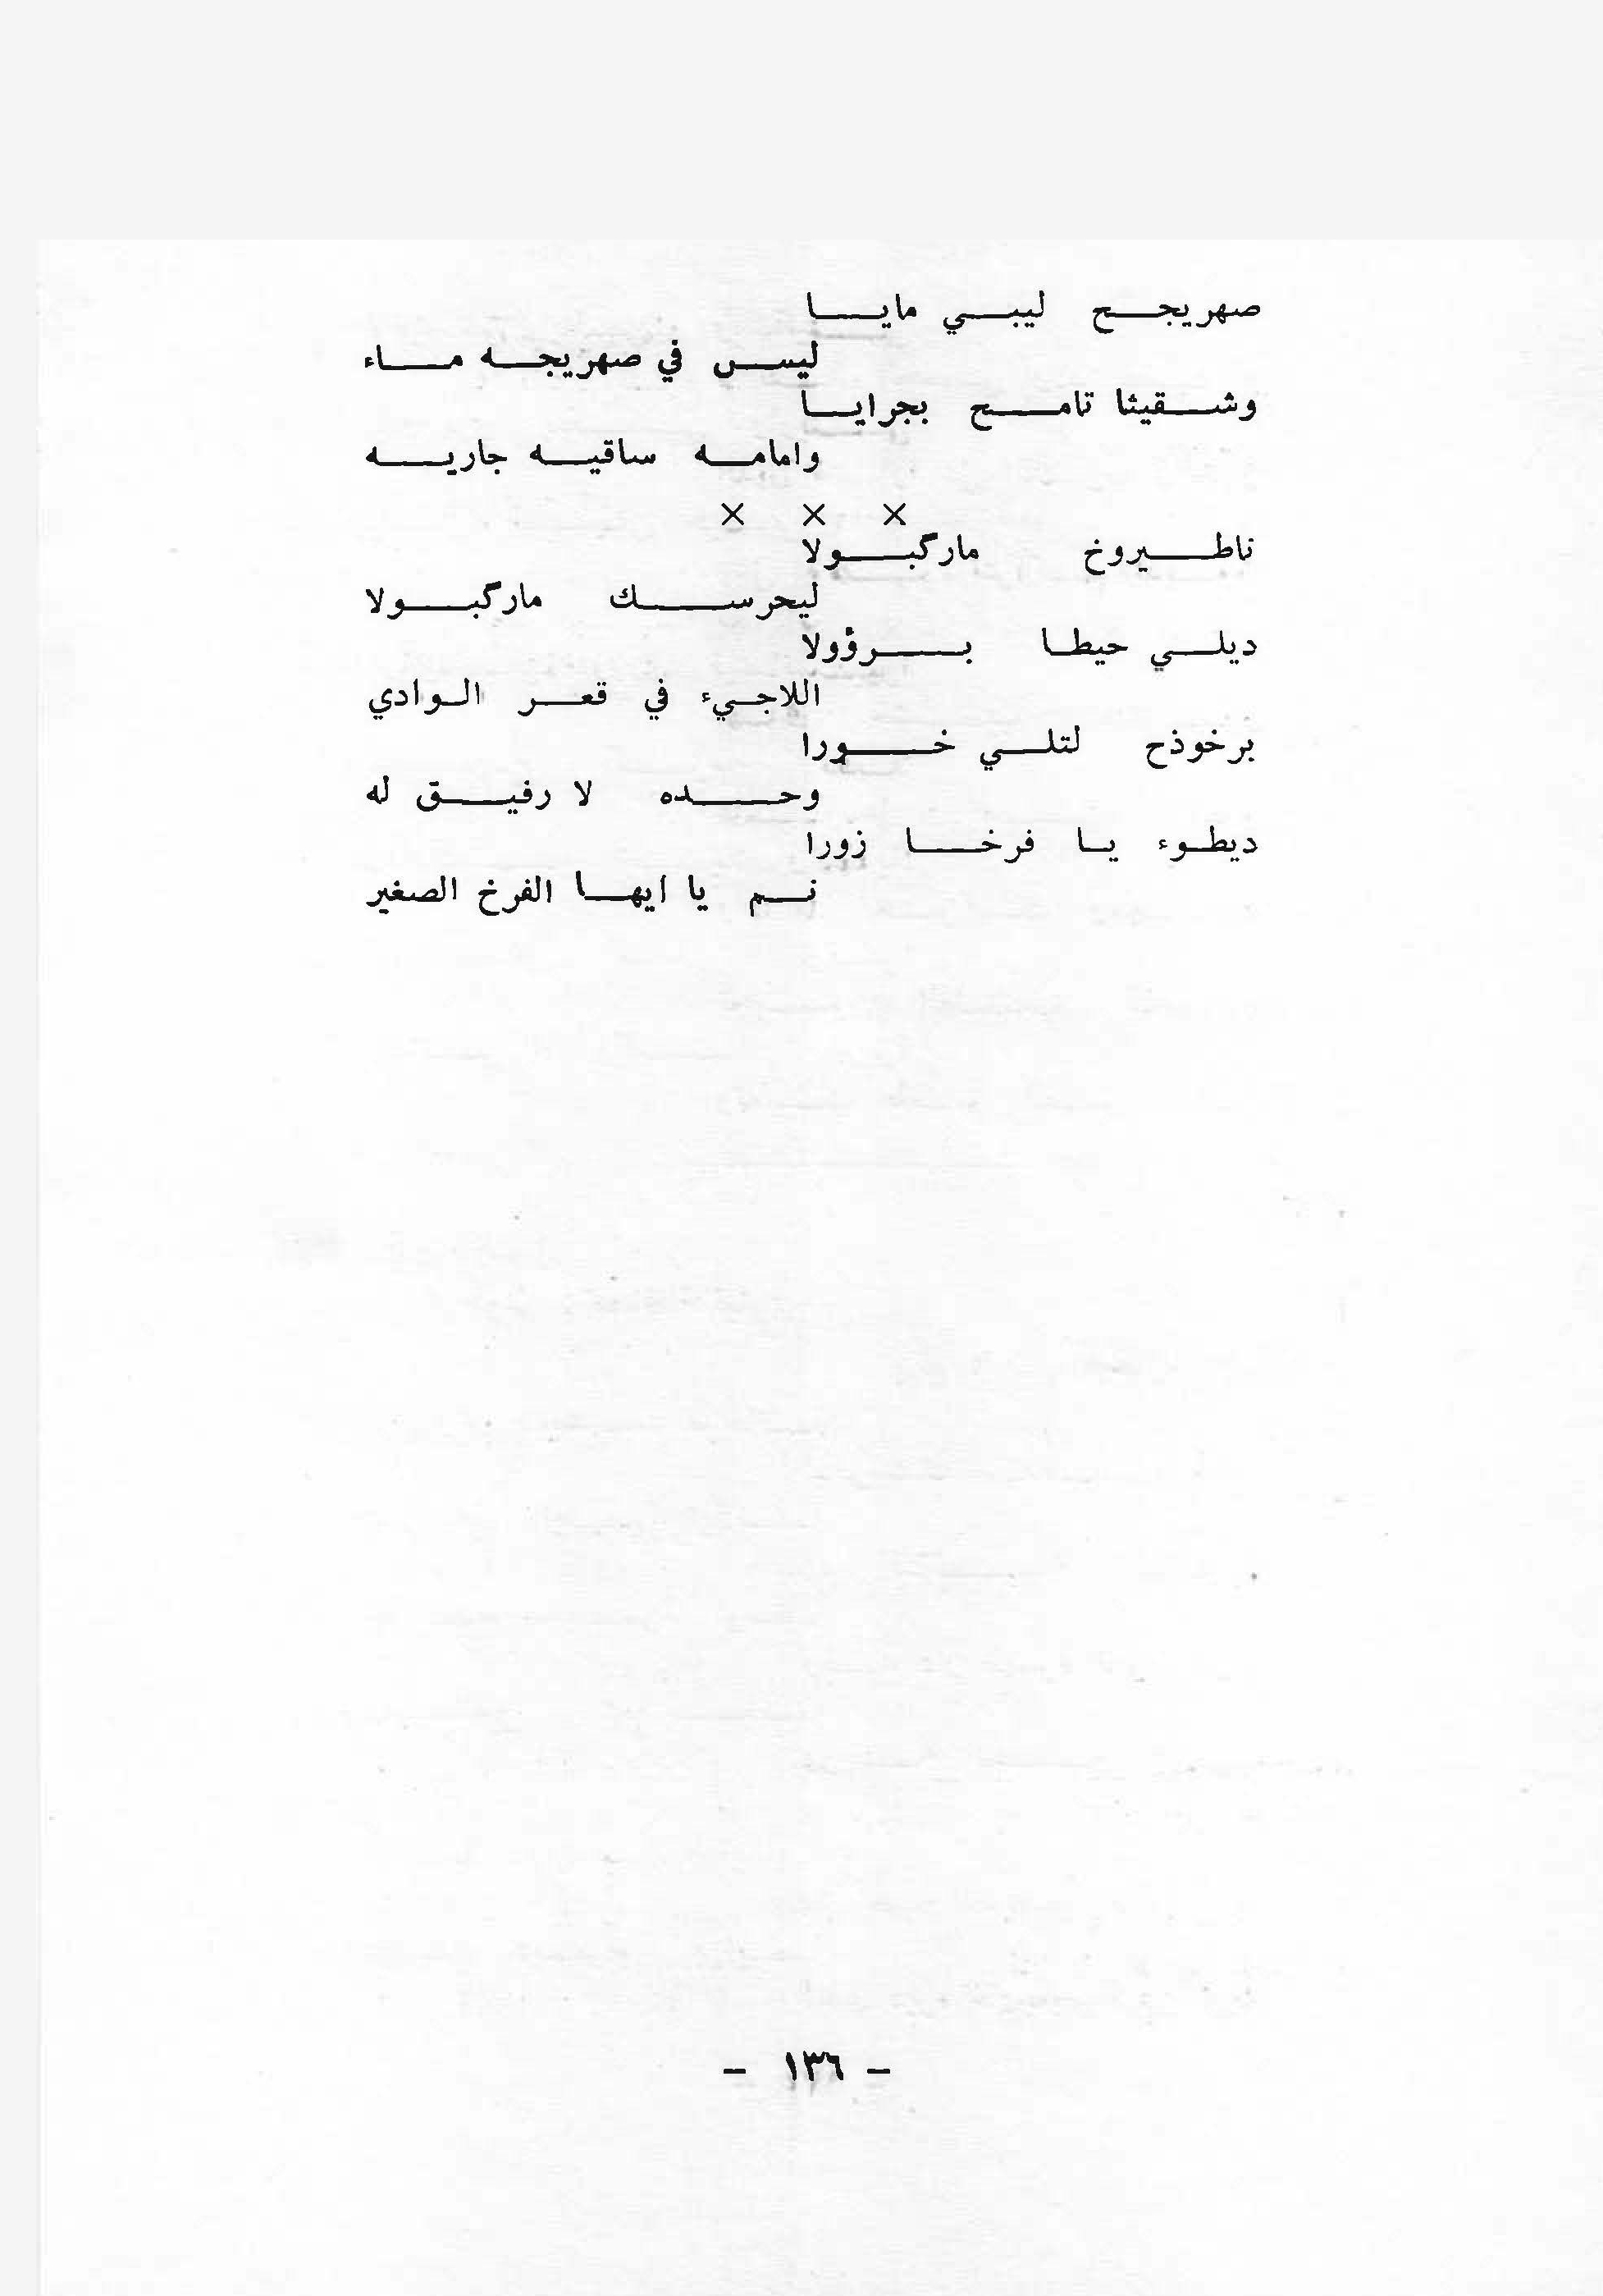 صهريجح ليبي مايا
ليس في صهريجه ماء
وشقيثا تامح بجرايا
وامامه ساقيه جاريه
× × ×
ناطيروخ مارگبولا
ليحرسك مارگبولا
ديلي حيطا برؤولا
اللاجيء في قعر الوادي
برخوذح لتلي خورا
وحده لا رفيق له
ديطوء يا فرخا زورا
نم يا ايها الفرخ الصغير
- ١٣٦ -